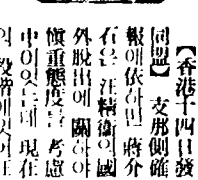 【香港十四日發
同盟】 支那側確
報에依하면 蔣介
石은 汪精衛의 國
外脫出에 關하야
愼重態度로 考慮
現在